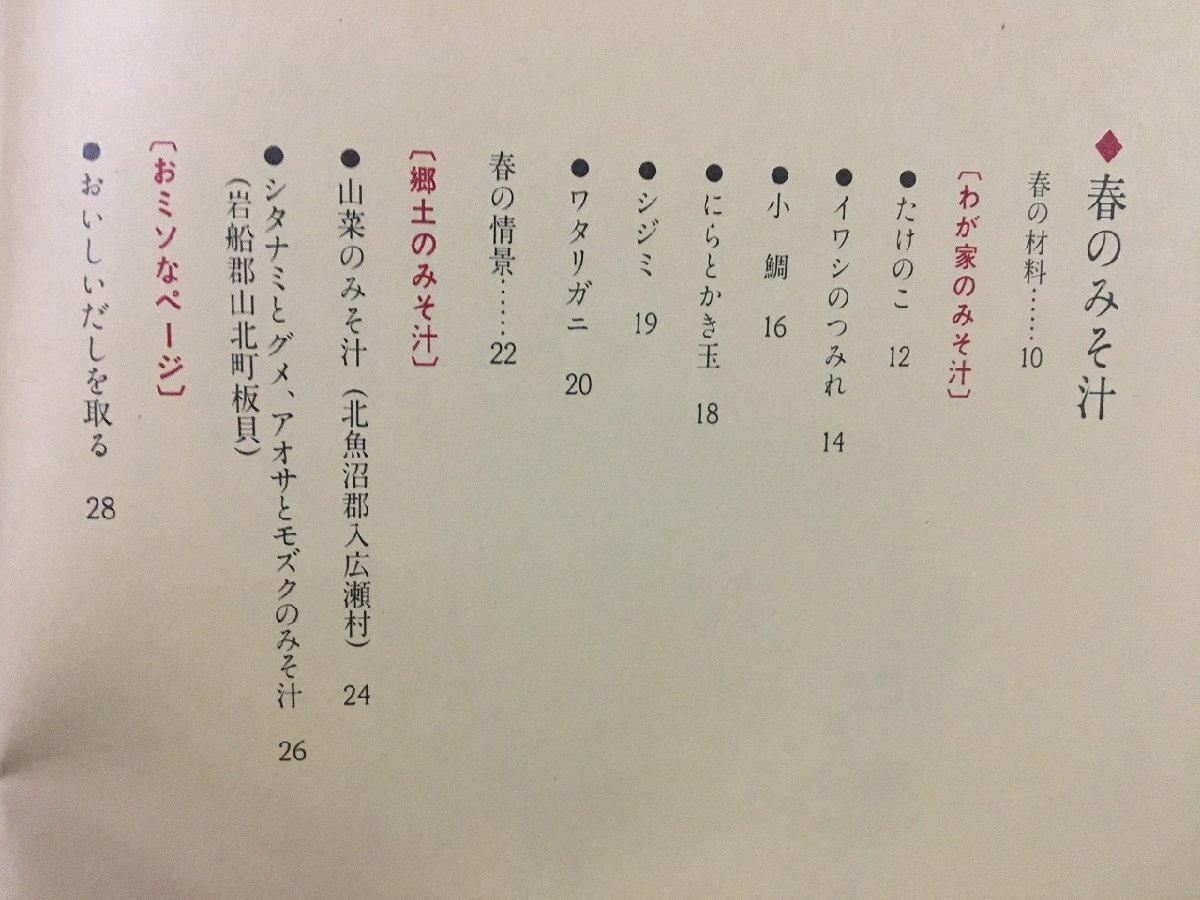 ◆春のみそ汁
春の材料……10
〔わが家のみそ汁〕
●たけのこ 12
●イワシのつみれ 14
●小鯛 16
●にらとかき玉 18
●シジミ 19
●ワタリガニ 20
春の情景……22
〔郷土のみそ汁〕
●山菜のみそ汁(北魚沼郡入広瀬村) 24
●シタナミとグメ、アオサとモズクのみそ汁 26
(岩船郡山北町板貝)
〔おミソなページ〕
●おいしいだしを取る 28